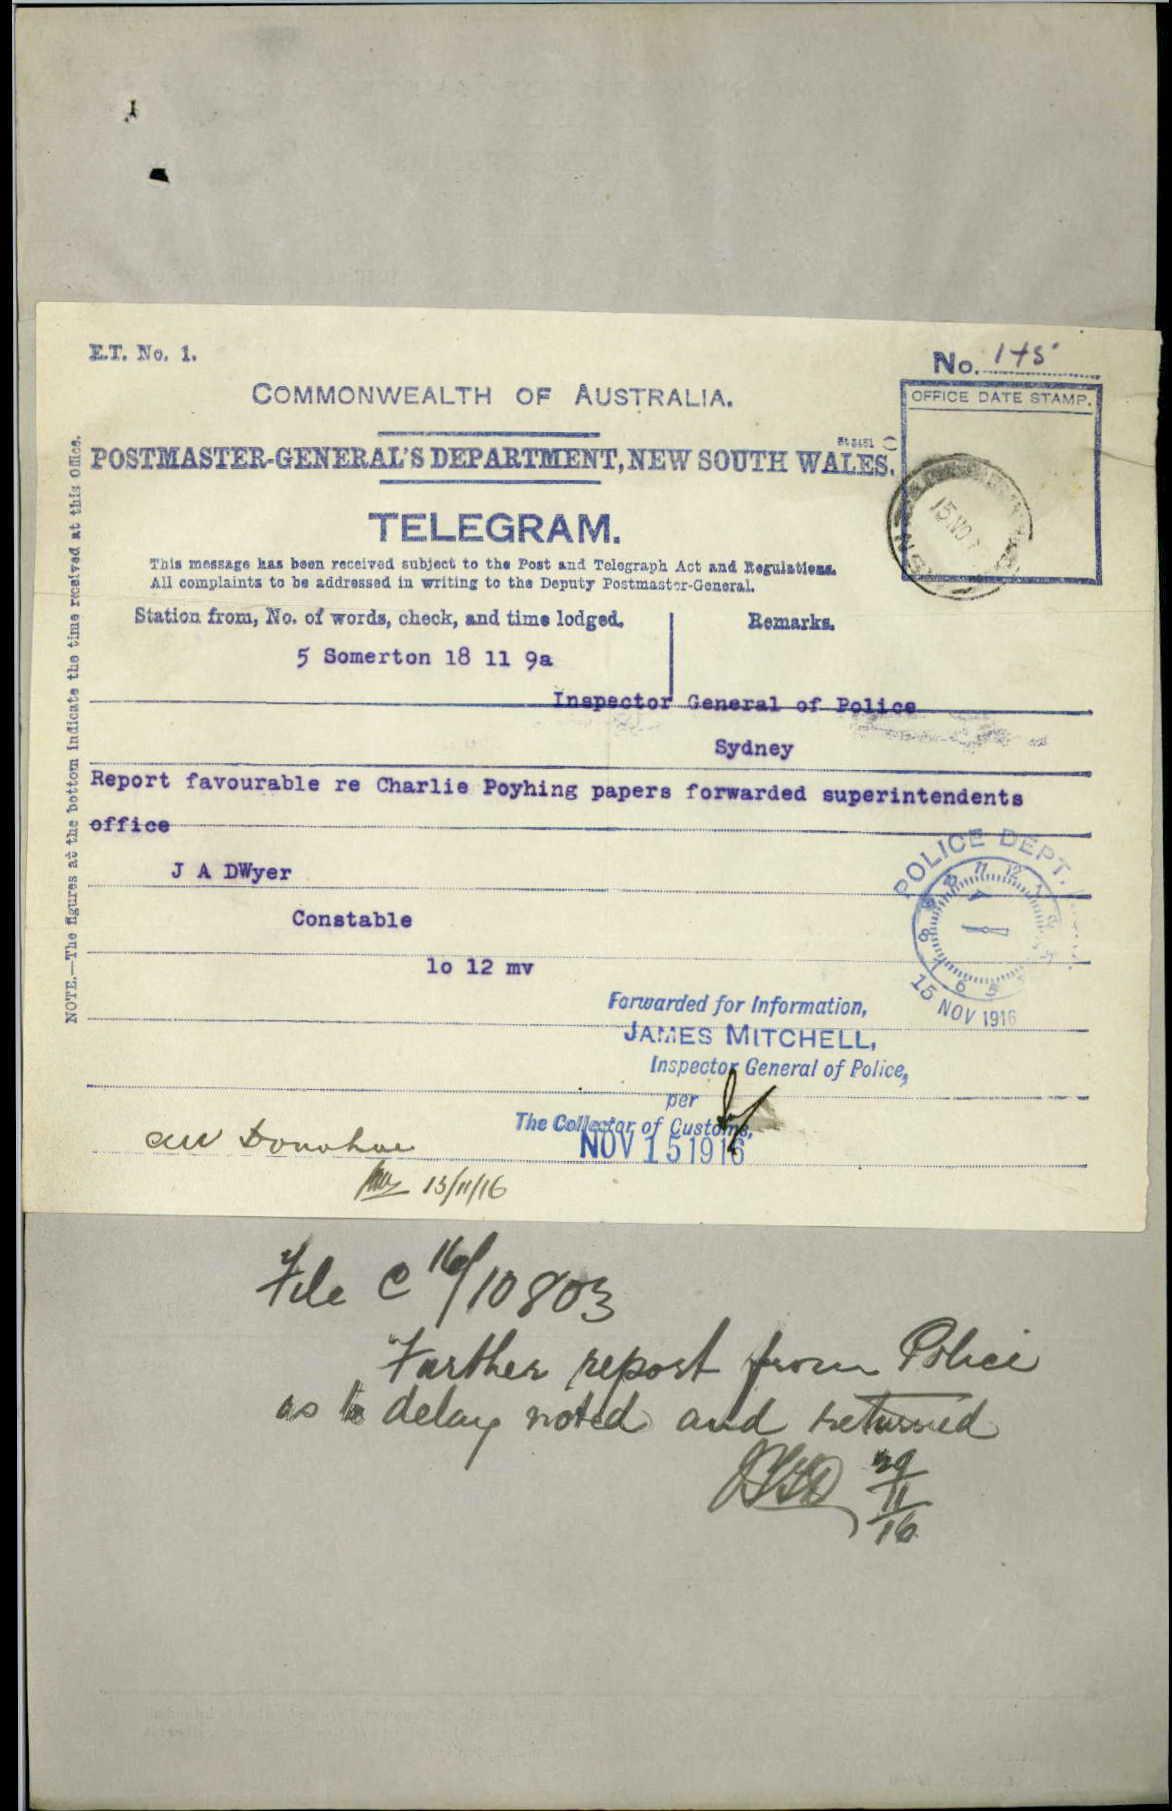 E.T. No. 1.
No. 145
COMMONWEALTH OF AUSTRALIA.
OFFICE DATE STAMP.
POSTMASTER-GENERAL'S DEPARTMENT, NEW SOUTH WALES.
15 NO
TELEGRAM.
This message has been received subject to the Post and Telegraph Act and Regulations.
All complaints to be addressed in writing to the Deputy Postmaster-General.
Station from, No. of words, check, and time lodged.
Remarks.
5 Somerton 18 11 9a
Inspector General of Police
Sydney
Report favourable re Charlie Poyhing papers forwarded superintendents
office
J A DWyer
Constable
lo 12 mv
NOTE.—The figures at the bottom indicate the time received at this Office.
POLICE DEPT.
15 NOV 1916
Forwarded for Information,
JAMES MITCHELL,
Inspector General of Police,
per
The Collector of Customs,
NOV 15 1916
Donohoe
15/11/16
File C 16/10803
Further report from Police
as to delay noted and returned
29
11
16